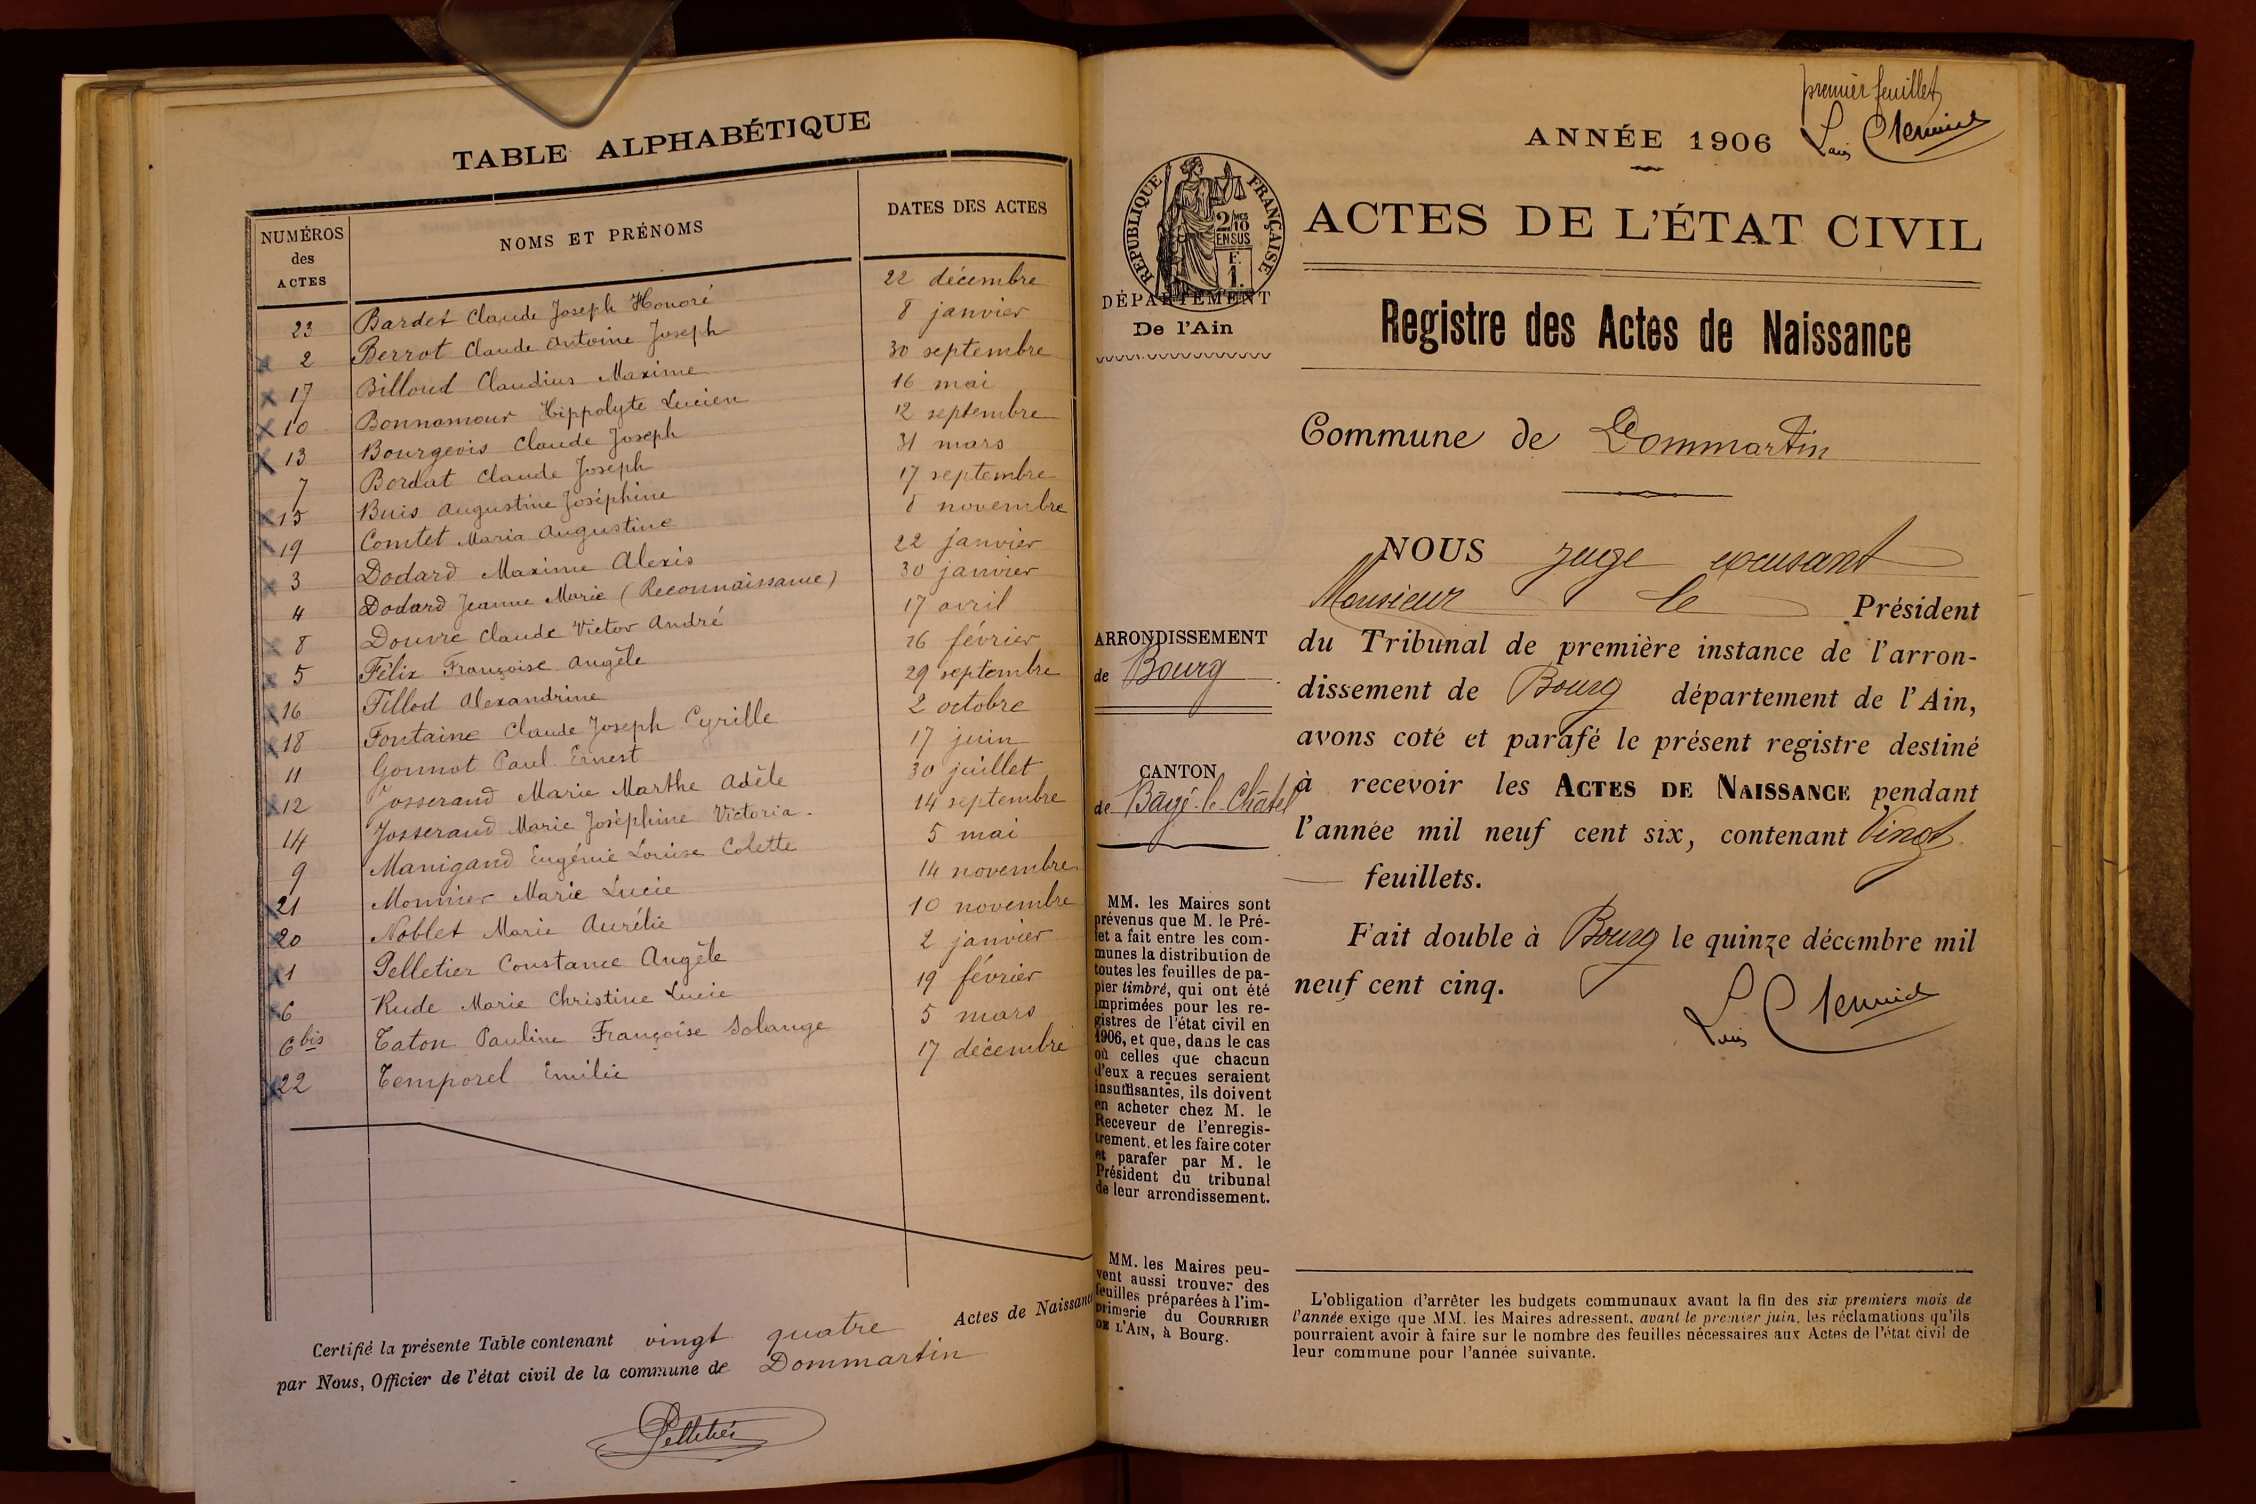 TABLE ALPHABÉTIQUE
NUMÉROS des ACTES
NOMS ET PRÉNOMS
DATES DES ACTES
23 Bardet Claude Joseph Honoré 22 décembre
2 Berrot Claude Antoine Joseph 8 janvier
17 Billoud Claudius Maxime 30 septembre
10 Bonnamour Hippolyte Lucien 16 mai
13 Bourgeois Claude Joseph 12 septembre
7 Bordat Claude Joseph 31 mars
15 Buis Augustine Joséphine 17 septembre
19 Comtet Maria Augustine 8 novembre
3 Dodard Maxime Alexis 22 janvier
4 Dodard Jeanne Marie (Reconnaissance) 30 janvier
8 Douvre Claude Victor André 17 avril
5 Félix Françoise Angèle 16 février
16 Fillod Alexandrine 29 septembre
18 Fontaine Claude Joseph Cyrille 2 octobre
11 Gonnot Paul Ernest 17 juin
12 Josserand Marie Marthe Adèle 30 juillet
14 Josserand Marie Joséphine Victoria 14 septembre
9 Manigand Eugénie Louise Colette 5 mai
21 Monnier Marie Lucie 14 novembre
20 Noblet Marie Aurélie 10 novembre
1 Pelletier Constance Angèle 2 janvier
6 Rude Marie Christine Lucie 19 février
6 bis Taton Pauline Françoise Solange 5 mars
22 Temporel Emilie 17 décembre
Certifié la présente Table contenant vingt quatre Actes de Naissance
par Nous, Officier de l'état civil de la commune de Dommartin
Pelletier
premier feuillet
ANNÉE 1906
RÉPUBLIQUE FRANÇAISE
2/10 MES
EN SUS
F.
1.
ACTES DE L'ÉTAT CIVIL
DÉPARTEMENT
De l'Ain
Registre des Actes de Naissance
Commune de Dommartin
ARRONDISSEMENT
de Bourg
CANTON
de Bâgé-le-Châtel
MM. les Maires sont
prévenus que M. le Pré-
fet a fait entre les com-
munes la distribution de
toutes les feuilles de pa-
pier timbré, qui ont été
imprimées pour les re-
gistres de l'état civil en
1906, et que, dans le cas
où celles que chacun
d'eux a reçues seraient
insuffisantes, ils doivent
en acheter chez M. le
Receveur de l'enregis-
trement, et les faire coter
et parafer par M. le
Président du tribunal
de leur arrondissement.
MM. les Maires peu-
vent aussi trouver des
feuilles préparées à l'im-
primerie du COURRIER
DE L'AIN, à Bourg.
NOUS juge excusant
Monsieur le Président
du Tribunal de première instance de l'arron-
dissement de Bourg département de l'Ain,
avons coté et parafé le présent registre destiné
à recevoir les ACTES DE NAISSANCE pendant
l'année mil neuf cent six, contenant Vingt
feuillets.
Fait double à Bourg le quinze décembre mil
neuf cent cinq.
L'obligation d'arrêter les budgets communaux avant la fin des six premiers mois de
l'année exige que MM. les Maires adressent, avant le premier juin, les réclamations qu'ils
pourraient avoir à faire sur le nombre des feuilles nécessaires aux Actes de l'état civil de
leur commune pour l'année suivante.